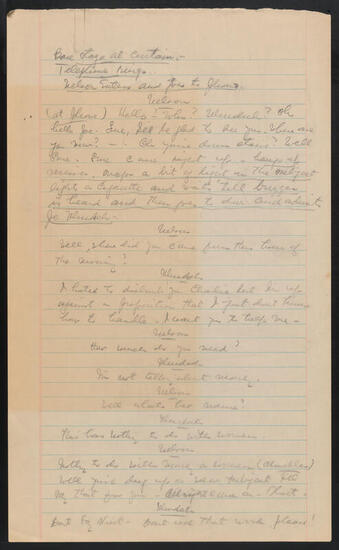 Bare stage at curtain. -
Telephone rings.
Nelson Enters and goes to phone.
Nelson
(at phone) Hello? Who? Oh
hello Joe. Sure, I'll be glad to see you. Where are
you now? - - - Oh you're down stairs? Well
Sure. Sure come right up - hangs up
receiver. a bit of light on the
lights a cigarette and waits till buzzer
is heard and then goes to door and admits
Joe
Nelson
Well, where did you come from this time of
the evening?
I hated to disturb you Charlie but I'm up
against a proposition that I just don't know
how to handle - I want you to help me -
Nelson
How much do you need?
I'm not talking about money.
Nelson
Well what's her name?
This has nothing to do with women.
Nelson
Nothing to do with money or women (chuckles)
Well
that from you - Allright come on - Shoot -
don't - dont use that word please!